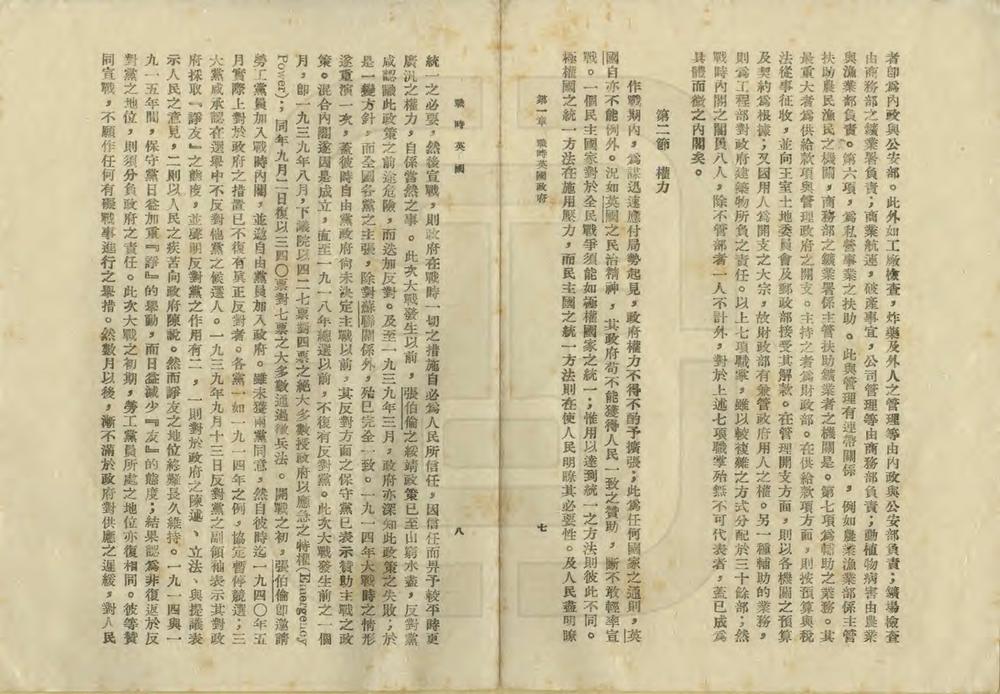 者卽爲內政與公安部。此外如工廠檢查，炸藥及外人之管理等由內政與公安部負責；鑛場檢查
由商務部之鑛業署負責；商業航運，破產事宜，公司管理等由商務部負責；動植物病害由農業
與漁業部負責。第六項，爲私營事業之扶助。此與管理有連帶關係，例如農業漁業部係主管
扶助農民漁民之機關，商務部之鑛業署係主管扶助鑛業者之機關是。第七項爲輔助之業務。其
最重大者爲供給款項與管理政府之開支。主持之者爲財政部。在供給款項方面，則按預算與稅
法從事征收，並向王室土地委員會及郵政部接受其解款。在管理開支方面，則以各機關之預算
及契約爲根據；又因用人爲開支之大宗，故財政部有兼管政府用人之權。另一種輔助的業務，
則爲工程部對政府建築物所負之責任。以上七項職掌，雖以較複雜之方式分配於三十餘部；然
戰時內閣之閣員八人，除不管部者一人不計外，對於上述七項職掌殆無不可代表者，蓋已成爲
具體而微之內閣矣。
第二節　權力
作戰期內，爲謀迅速應付局勢起見，政府權力不得不酌予擴張；此爲任何國家之通則，英
國自亦不能例外。況如英國之民治精神，其政府苟不能獲得人民一致之贊助，斷不敢輕率宣
戰。一個民主國家對於全民戰爭須能如極權國家之統一；惟用以達到統一之方法則彼此不同。
極權國之統一方法在施用壓力，而民主國之統一方法則在使人民明瞭其必要性。及人民盡明瞭
第一章　戰時英國政府
七
戰時英國
八
統一之必要，然後宣戰，則政府在戰時一切之措施自必爲人民所信任，因信任而畀予較平時更
廣汎之權力，自係當然之事。此次大戰發生以前，張伯倫之綏靖政策已至山窮水盡，反對黨
咸認識此政策之前途危險，而迭加反對。及至一九三九年三月，政府亦深知此政策之失敗；於
是一變方針，而全國各黨之主張，除對蘇聯關係外，殆已完全一致。一九一四年大戰時之情形
遂重演一次，蓋彼時自由黨政府尚未決定主戰以前，其反對方面之保守黨已表示贊助主戰之政
策。混合內閣遂因是成立，直至一九一八年總選以前，不復有反對黨。此次大戰發生前之一個
月，卽一九三九年八月，下議院以四二七票對四票之絕大多數授政府以應急之特權(Emergency
Power)；同年九月二日復以三四〇票對七票之大多數通過徵兵法。開戰之初，張伯倫卽邀請
勞工黨員加入戰時內閣，並邀自由黨員加入政府。雖未獲兩黨同意，然自彼時迄一九四〇年五
月實際上對於政府之措置已不復有眞正反對者。各黨一如一九一四年之例，協定暫停競選；三
大黨咸承認在選舉中不反對他黨之候選人。一九三九年九月十三日反對黨之副領袖表示其對政
府採取『諍友』之態度，並聲明反對黨之作用有二，一則對於政府之陳述、立法、與提議表
示人民之意見，二則以人民之疾苦向政府陳說。然而諍友之地位終難長久維持。一九一四與一
九一五年間，保守黨日益加重『諍』的舉動，而日益減少『友』的態度；結果認爲非復返於反
對黨之地位，則須分負政府之責任。此次大戰之初期，勞工黨員所處之地位亦復相同。彼等贊
同宣戰，不願作任何有礙戰事進行之舉措。然數月以後，漸不滿於政府對供應之遲緩，對人民